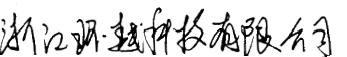 浙江玑越科技有限公司